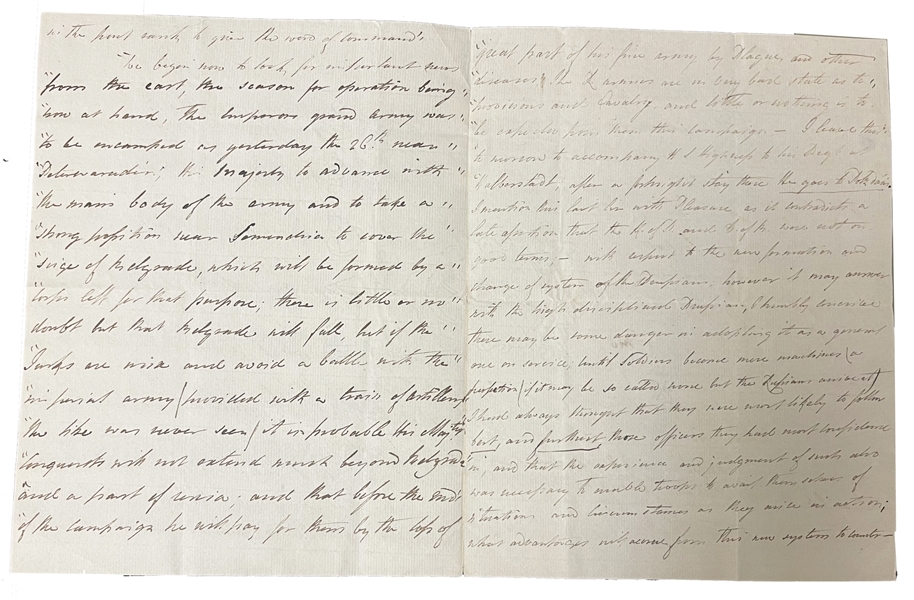 in the front rank to give the word of command".
"We began now to look for important news
"from the east, the season for operation being "
"now at hand, the Emperors grand army was "
"to be encamped as yesterday the 26th near "
"Peterwaradin; his Majesty to advance with "
"the main body of the army and to take a "
"strong position near Semendria to cover the "
"siege of Belgrade, which will be formed by a "
"Corps left for that purpose; there is little or no "
doubt but that Belgrade will fall, but if the "
"Turks are wise and avoid a battle with the "
"imperial army (provided with a train of artillery
"the like was never seen) it is probable his Majtys
"Conquests will not extend much beyond Belgrade
"and a part of Servia; and that before the end
"of the Campaign he will pay for them by the loss of
"great part of his fine army by Plague, and other
"diseases. The R armies are in very bad state as to "
"provisions and Cavalry, and little or nothing is to
"be expected from them this campaign — I leave this
to morrow to accompany H R Highness to his Regt at
"Halberstadt, after a fortnight stay there He goes to
I mention this last line with Pleasure, as it contradicts a
late assertion that the K. of P. and D. of B. were not on
good terms. — with respect to the new formation and
change of system of the Prussians, however it may answer
with the high disciplined Prussian, I humbly conceive
there may be some danger in adopting it as a general
one on service, until Soldiers become more machines (a
perfection, if it may be so called, none but the Prussians arrive at)
I had always thought that they were most likely to follow
best, and furthest those officers they had most confidence
in, and that the experience and judgment of such also
was necessary to enable troops to avail themselves of
situations and Circumstances as they arise in action;
what advantages will accrue from this new system to counter—